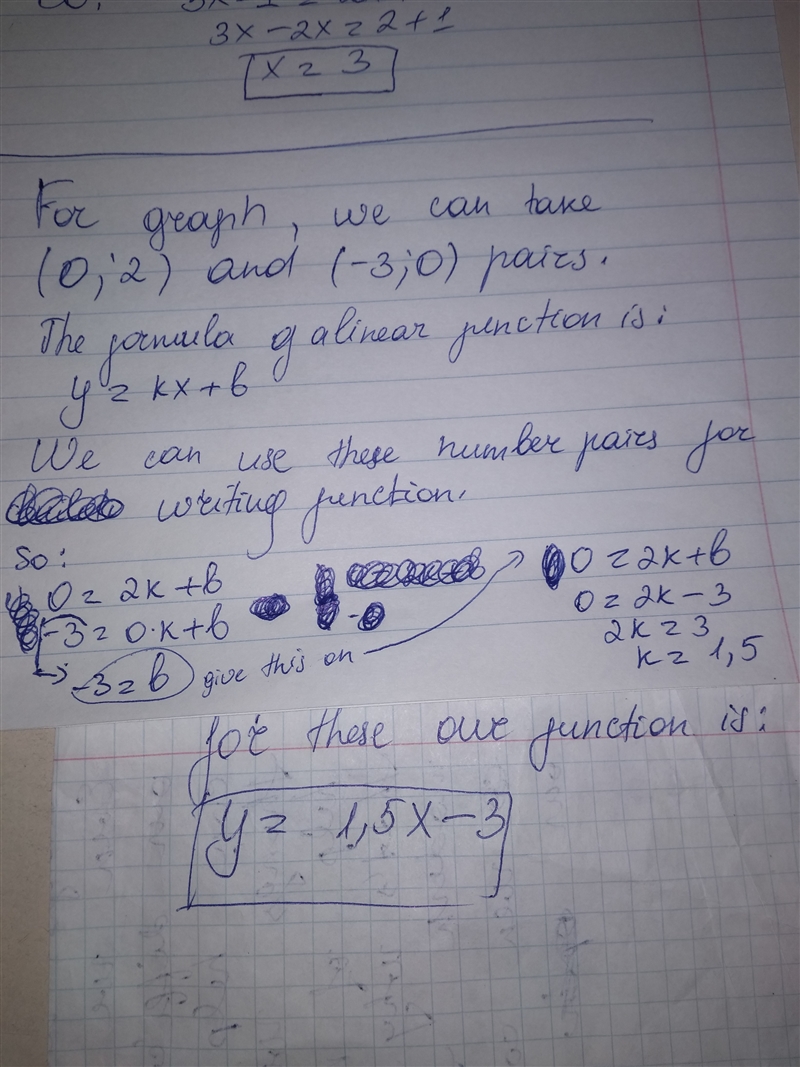 3x-2x=2+1
x=3
For graph, we can take
(0;2) and (-3;0) pairs.
The formula of a linear function is:
y=kx+b
We can use these number pairs for
writing function.
So:
0=2k+b
-3=0·k+b
-3=b give this on
0=2k+b
0=2k-3
2k=3
k=1,5
for these our function is:
y=1,5x-3